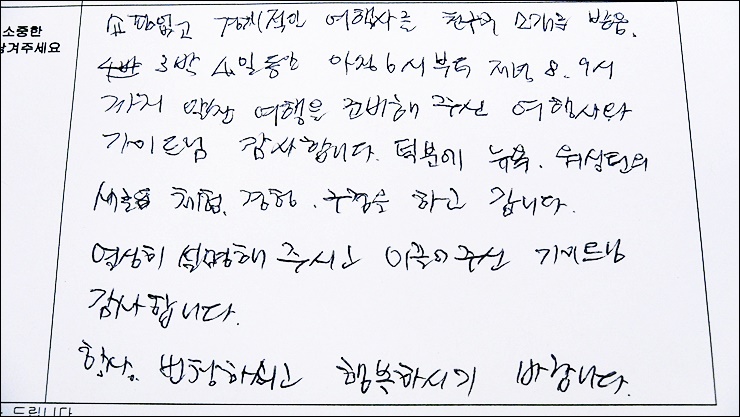 소중한
남겨주세요
쇼핑없고 경제적인 여행사를 친구의 소개를 받음.
3박 4일동안 아침6시부터 저녁 8.9시
까지 알찬 여행을 준비해 주신 여행사와
가이드님 감사합니다. 덕분에 뉴욕. 워싱턴의
체험. 경험. 구경을 하고 갑니다.
열심히 설명해 주시고 이끌어주신 가이드님
감사합니다.
항상. 번창하시고 행복하시기 바랍니다.
드립니다